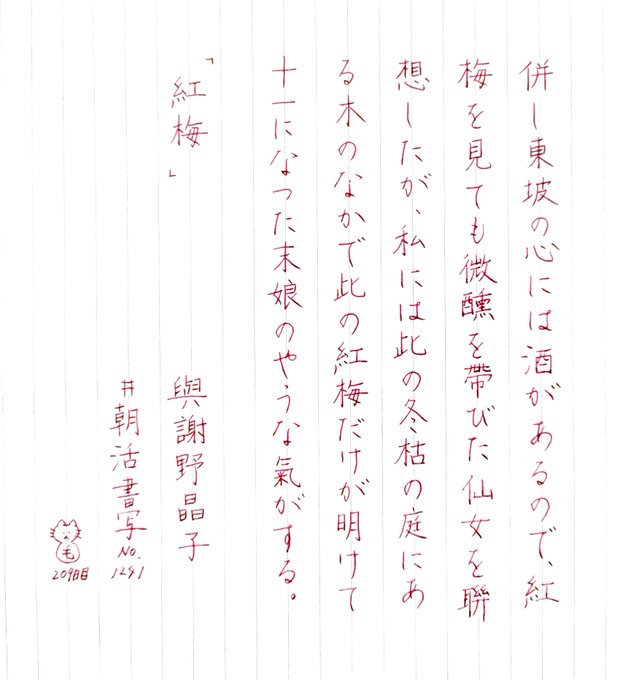 併し東坡の心には酒があるので、紅
梅を見ても微醺を帶びた仙女を聯
想したが、私には此の冬枯の庭にあ
る木のなかで此の紅梅だけが明けて
十一になつた末娘のやうな氣がする。
「紅梅」
與謝野晶子
#朝活書写 No.1241
毛
209日目